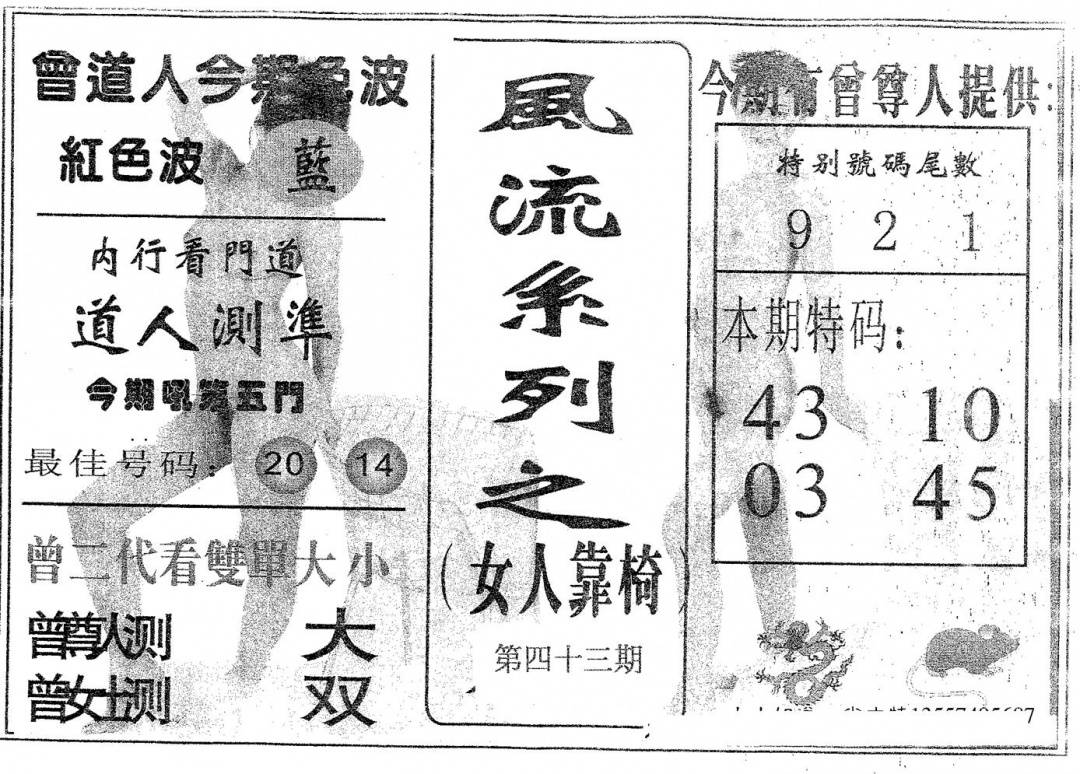 曾道人今期色波
紅色波 藍
内行看門道
道人測準
今期吼第五門
最佳号码: 20 14
曾二代看雙單大小
曾尊人测 大
曾女士测 双
風流系列之
(女人靠椅)
第四十三期
今期有曾尊人提供:
特别號碼尾數
9 2 1
本期特码:
43 10
03 45